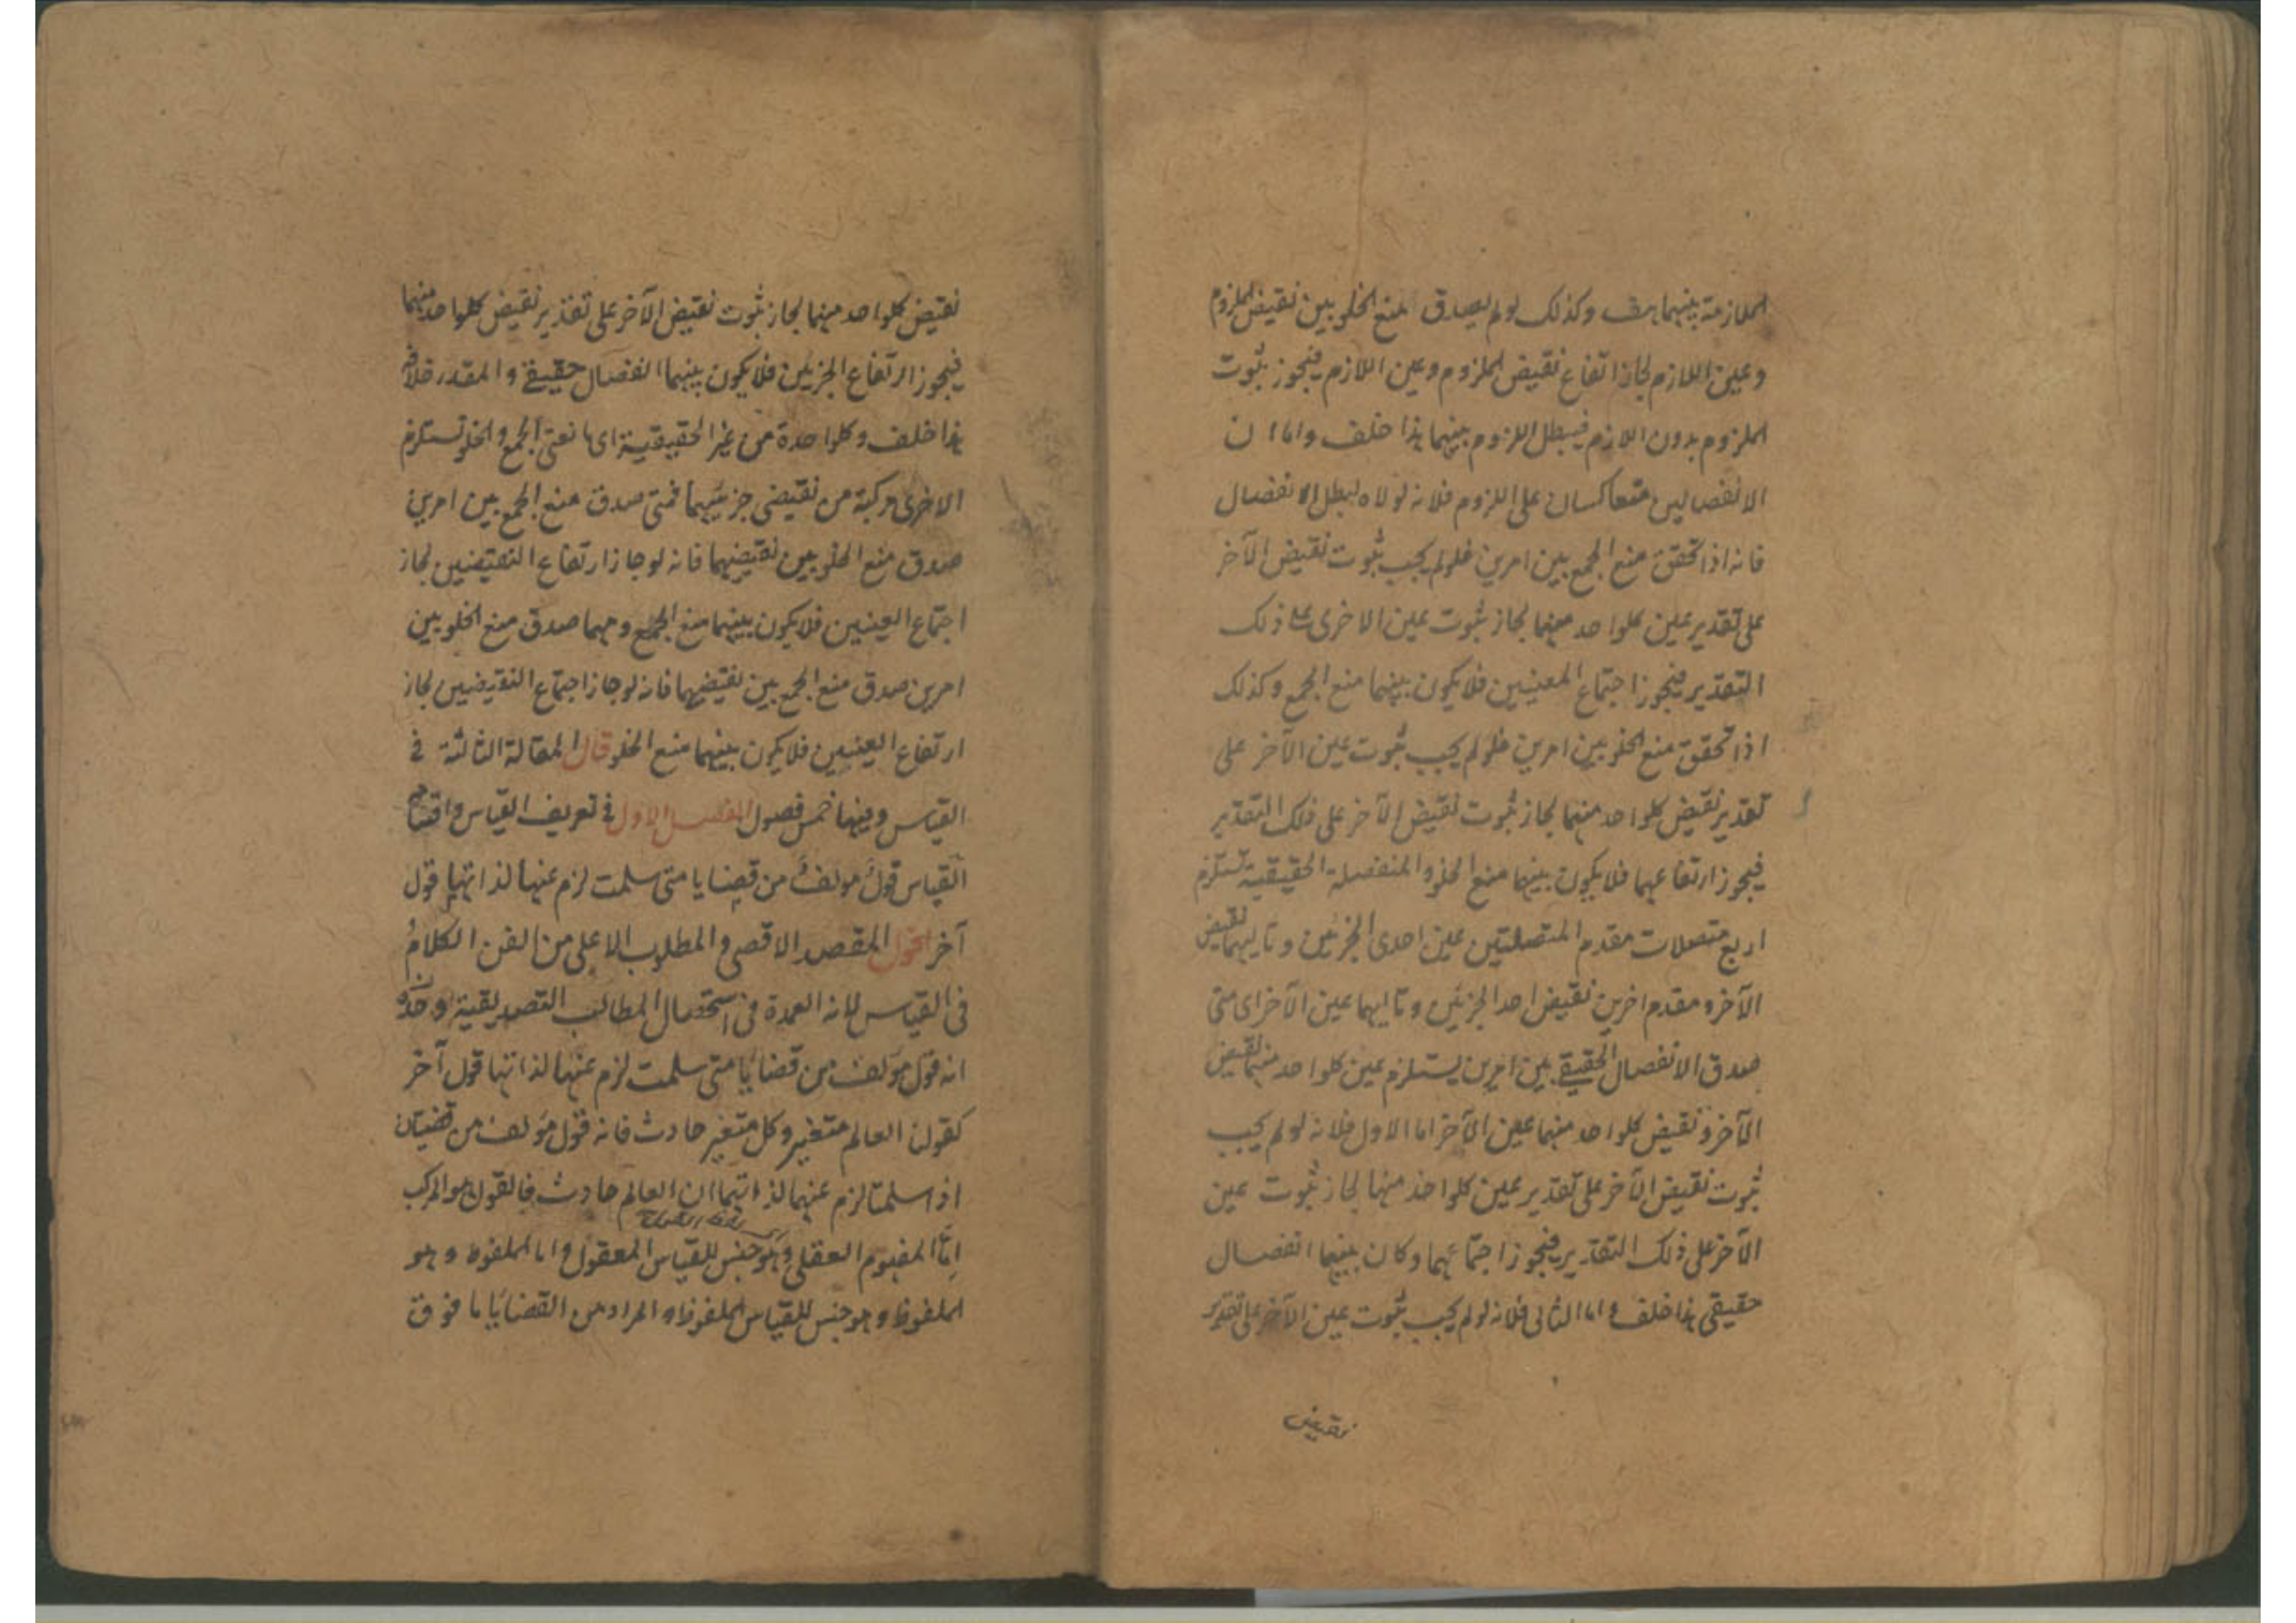 الملازمة بينهما هف وكذلك لو لم يصدق منع الخلو بين نقيض الملزوم
وعين اللازم لجاز ارتفاع نقيض الملزوم وعين اللازم فيجوز ثبوت
الملزوم بدون اللازم فيبطل اللزوم بينهما هذا خلف واما ان
الانفصالين متعاكسان على اللزوم فلانه لولاه لبطل الانفصال
فانه اذا تحقق منع الجمع بين امرين فلو لم يجب ثبوت نقيض الآخر
على تقدير عين كلواحد منهما لجاز ثبوت عين الاخرى على ذلك
التقدير فيجوز اجتماع المعينين فلا يكون بينهما منع الجمع وكذلك
اذا تحقق منع الخلو بين امرين فلو لم يجب ثبوت عين الآخر على
تقدير نقيض كلواحد منهما لجاز ثبوت نقيض الآخر على ذلك التقدير
فيجوز ارتفاعهما فلا يكون بينهما منع الخلو والمنفصلة الحقيقية تستلزم
اربع متصلات مقدم المتصلتين عين احدى الجزئين وتاليهما نقيض
الآخر ومقدم اخرين نقيض احد الجزئين وتاليهما عين الآخر اى متى
صدق الانفصال الحقيقي بين امرين يستلزم عين كلواحد منهما نقيض
الآخر ونقيض كلواحد منهما عين الآخر اما الاول فلانه لو لم يجب
ثبوت نقيض الآخر على تقدير عين كلواحد منهما لجاز ثبوت عين
الآخر على ذلك التقدير فيجوز اجتماعهما وكان بينهما انفصال
حقيقى هذا خلف واما الثانى فلانه لو لم يجب ثبوت عين الآخر على تقدير
نقيض
نقيض كلواحد منهما لجاز ثبوت نقيض الآخر على تقدير نقيض كلواحد منهما
فيجوز ارتفاع الجزئين فلا يكون بينهما انفصال حقيقي والمقدر خلافه
هذا خلف وكلواحدة من غير الحقيقية اى مانعتى الجمع والخلو تستلزم
الاخرى مركبة من نقيضى جزئيهما فمتى صدق منع الجمع بين امرين
صدق منع الخلو بين نقيضيهما فانه لو جاز ارتفاع النقيضين لجاز
اجتماع العينين فلا يكون بينهما منع الجمع ومهما صدق منع الخلو بين
امرين صدق منع الجمع بين نقيضيهما فانه لو جاز اجتماع النقيضين لجاز
ارتفاع العينين فلا يكون بينهما منع الخلو قال المقالة الثالثة في
القياس وفيها خمس فصول الفصل الاول في تعريف القياس واقسامه
القياس قول مؤلف من قضايا متى سلمت لزم عنها لذاتها قول
آخر اقول المقصد الاقصى والمطلب الاعلى من الفن الكلام
فى القياس لانه العمدة فى استحصال المطالب التصديقية وحده
انه قول مؤلف من قضايا متى سلمت لزم عنها لذاتها قول آخر
كقولنا العالم متغير وكل متغير حادث فانه قول مؤلف من قضيتان
اذا سلمتا لزم عنهما لذاتهما ان العالم حادث فالقول هو المركب
امّا المفهوم العقلى وهو جنس للقياس المعقول واما الملفوظ وهو
الملفوظ وهو جنس للقياس الملفوظ والمراد من القضايا ما فوق